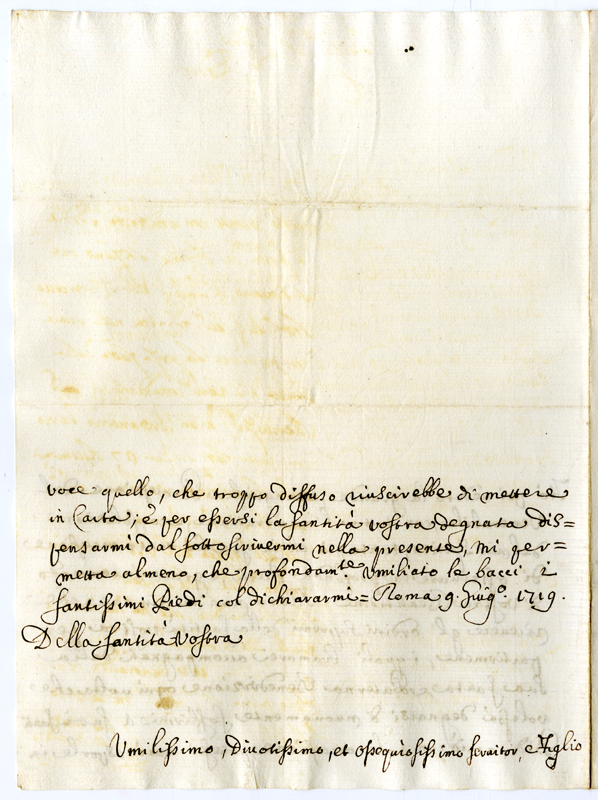 voce quello, che troppo diffuso riuscirebbe di mettere
in Carta; è per essersi la Santità vostra degnata dis=
pensarmi dal sottoscrivermi nella presente, mi per=
metta almeno, che profondamte. Umiliato le bacci i
Santissimi Piedi col dichiararmi = Roma 9. Giugo. 1719.
Della Santità Vostra
Umilissimo, Divotissimo, et ossequiosissimo servitor, e Figlio